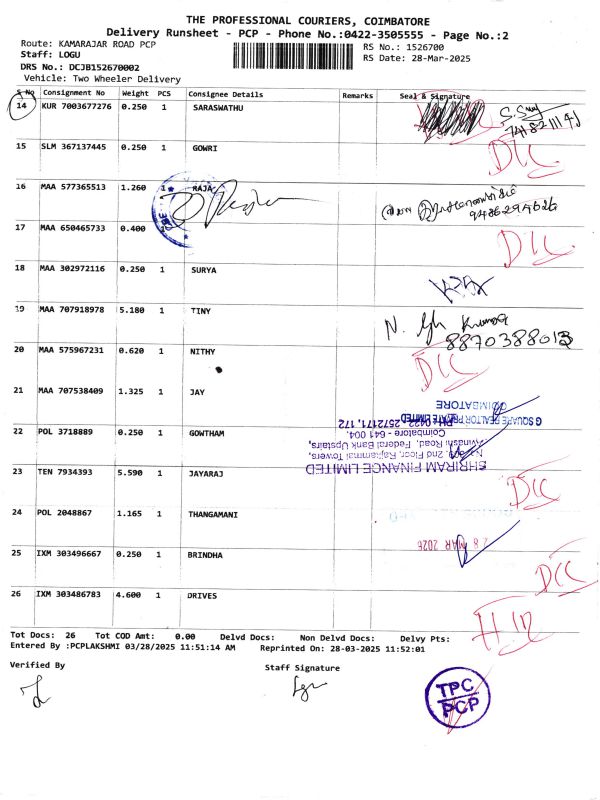 THE PROFESSIONAL COURIERS, COIMBATORE
Delivery Runsheet - PCP - Phone No.:0422-3505555 - Page No.:2
Route: KAMARAJAR ROAD PCP
RS No.: 1526700
Staff: LOGU
RS Date: 28-Mar-2025
DRS No.: DCJB152670002
Vehicle: Two Wheeler Delivery
S No Consignment No Weight PCS Consignee Details Remarks Seal & Signature
14 KUR 7003677276 0.250 1 SARASWATHU
15 SLM 367137445 0.250 1 GOWRI
DLC
16 MAA 577365513 1.260 1 RAJA
9486294626
17 MAA 650465733 0.400
DLC
18 MAA 302972116 0.250 1 SURYA
19 MAA 707918978 5.180 1 TINY
N.
8870388013
20 MAA 575967231 0.620 1 NITHY
DLC
21 MAA 707538409 1.325 1 JAY
COIMBATORE
G SQUARE REALTOR PRIVATE LIMITED
PH: 0422 - 2572171, 172
Coimbatore - 641 004.
22 POL 3718889 0.250 1 GOWTHAM
Avinashi Road, Federal Bank Upstairs,
2nd Floor, Rajlammal Towers,
SHRIRAM FINANCE LIMITED
23 TEN 7934393 5.590 1 JAYARAJ
DLC
24 POL 2048867 1.165 1 THANGAMANI
28 MAR 2026
25 IXM 303496667 0.250 1 BRINDHA
DLC
26 IXM 303486783 4.600 1 DRIVES
Tot Docs: 26 Tot COD Amt: 0.00 Delvd Docs: Non Delvd Docs: Delvy Pts:
Entered By :PCPLAKSHMI 03/28/2025 11:51:14 AM Reprinted On: 28-03-2025 11:52:01
Verified By Staff Signature
TPC
PCP